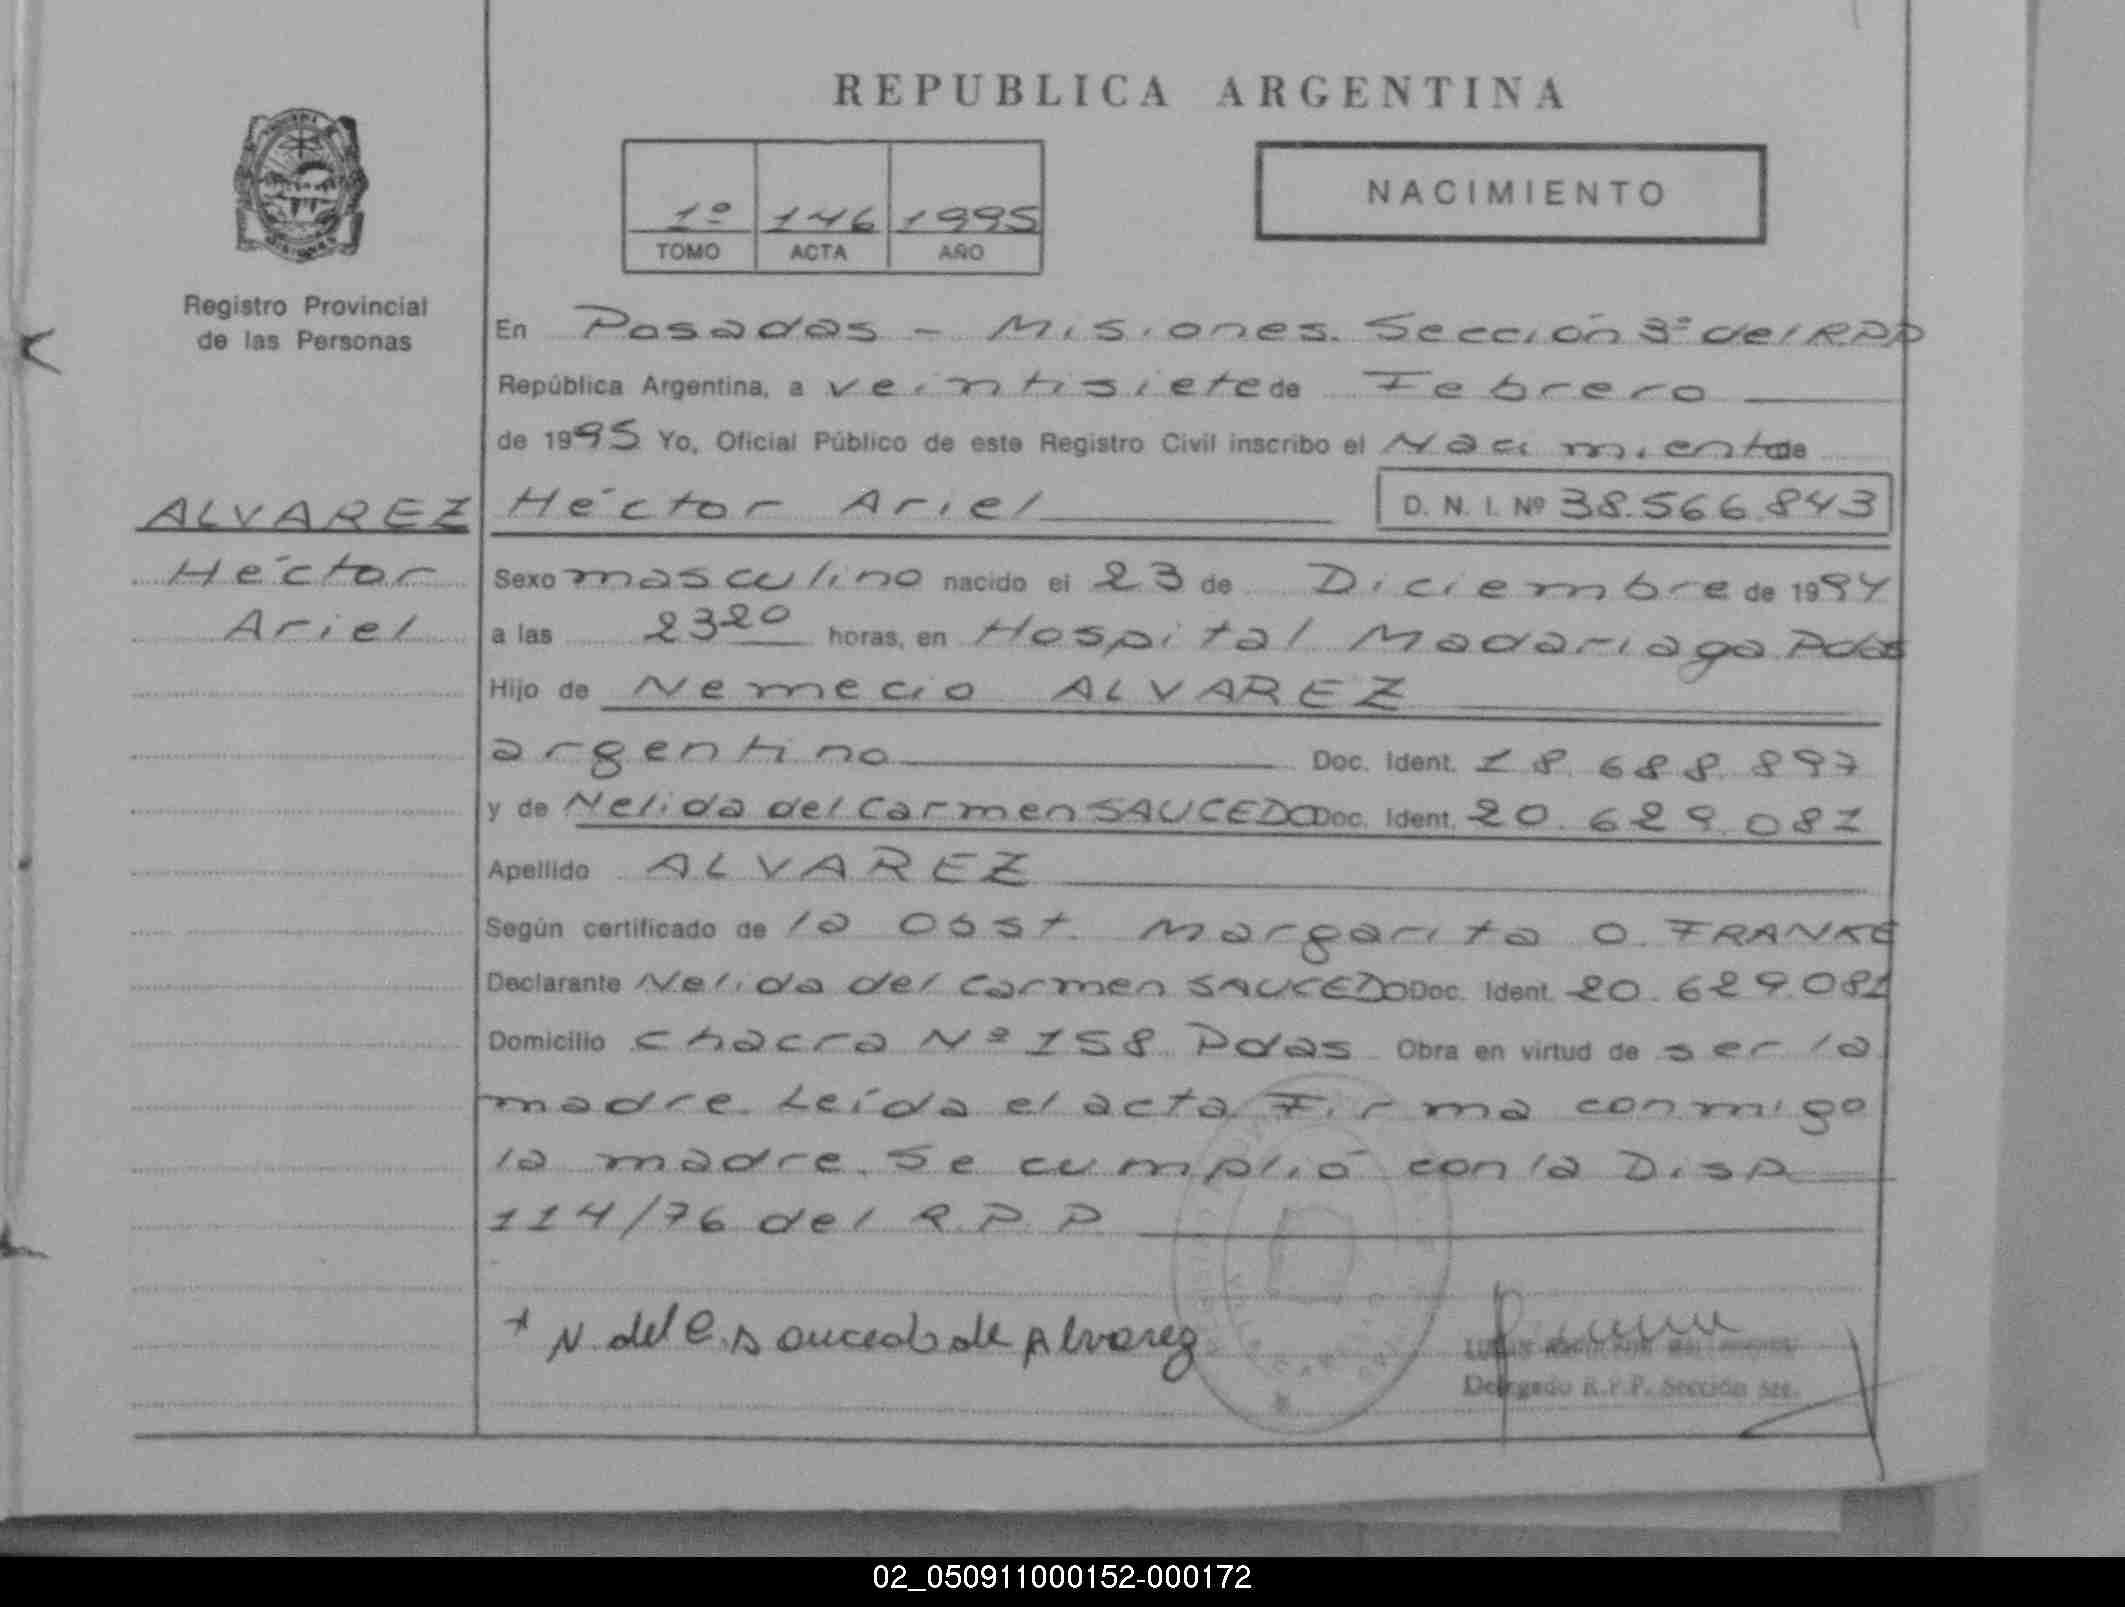 REPUBLICA ARGENTINA
1º 146 1995
TOMO ACTA AÑO
NACIMIENTO
Registro Provincial
de las Personas
En Posadas - Misiones. Sección 3º del RPP
República Argentina, a veintisiete de Febrero
de 1995 Yo, Oficial Público de este Registro Civil inscribo el Nacimiento de
ALVAREZ
Héctor
Ariel
Héctor Ariel D. N. I. Nº 38.566.843
Sexo masculino nacido el 23 de Diciembre de 1994
a las 23 20 horas, en Hospital Madariaga Pdas
Hijo de Nemecio ALVAREZ
argentino Doc. Ident. 18.688.897
y de Nelida del Carmen SAUCEDO Doc. Ident. 20.629.081
Apellido ALVAREZ
Según certificado de la Obst. Margarita O. FRANKE
Declarante Nelida del Carmen SAUCEDO Doc. Ident. 20.629.081
Domicilio Chacra Nº 158 Pdas Obra en virtud de ser la
madre. Leída el acta Firma conmigo
la madre. Se cumplió con la Disp
114/76 del R.P.P
+ N. del C. Saucedo de Alvarez
Delegado R.P.P. Sección 3ra.
02_050911000152-000172